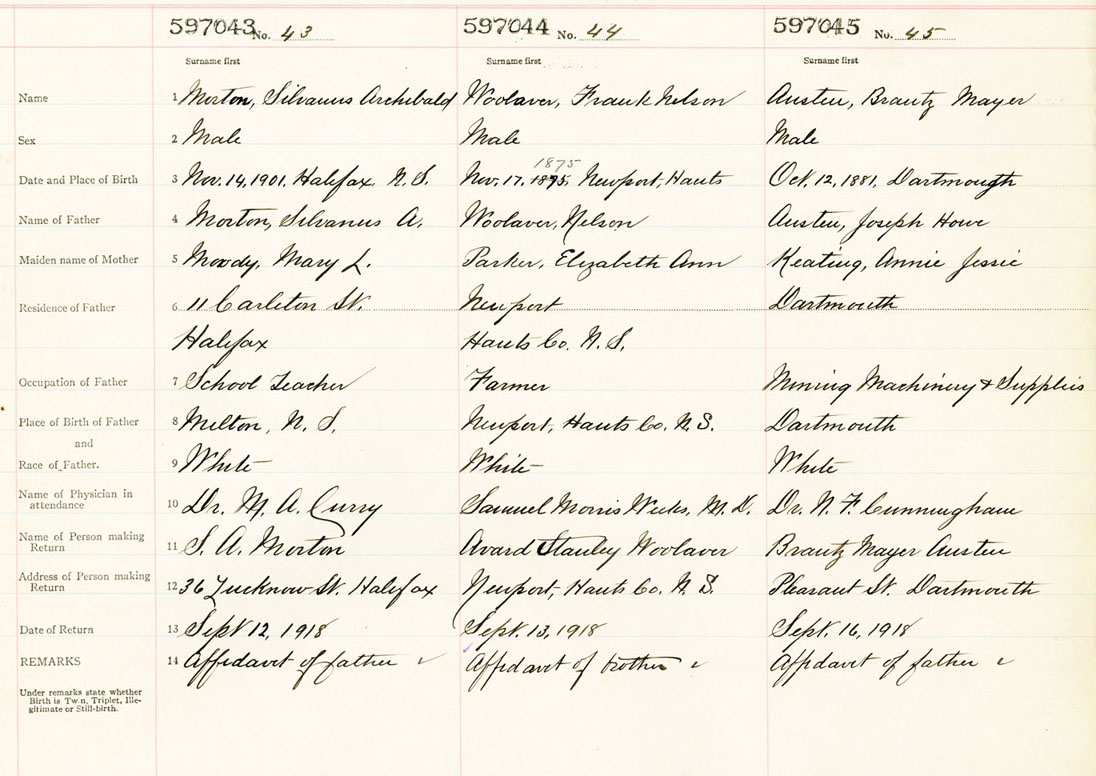 597043 No. 43 597044 No. 44 597045 No. 45
Surname first Surname first Surname first
Name 1 Morton, Silvanus Archibald Woolaver, Frank Nelson Austen, Brantz Mayer
Sex 2 Male Male Male
1875
Date and Place of Birth 3 Nov. 14, 1901, Halifax, N.S. Nov. 17, 1895, Newport, Hants Oct. 12, 1881, Dartmouth
Name of Father 4 Morton, Silvanus A. Woolaver, Nelson Austen, Joseph Howe
Maiden name of Mother 5 Moody, Mary L. Parker, Elizabeth Ann Keating, Annie Jessie
Residence of Father 6 11 Carleton St. Newport Dartmouth
Halifax Hants Co. N.S.
Occupation of Father 7 School Teacher Farmer Mining Machinery & Supplies
Place of Birth of Father 8 Milton, N.S. Newport, Hants Co. N.S. Dartmouth
and
Race of Father. 9 White White White
Name of Physician in
attendance 10 Dr. M. A. Curry Samuel Morris Weeks, M.D. Dr. N. F. Cunningham
Name of Person making
Return 11 S. A. Morton Avard Stanley Woolaver Brantz Mayer Austen
Address of Person making
Return 12 36 Lucknow St. Halifax Newport, Hants Co. N.S. Pleasant St. Dartmouth
Date of Return 13 Sept 12, 1918 Sept. 13, 1918 Sept. 16, 1918
REMARKS 14 Affidavit of father Affidavit of brother Affidavit of father
Under remarks state whether
Birth is Twin, Triplet, Ille-
gitimate or Still-birth.